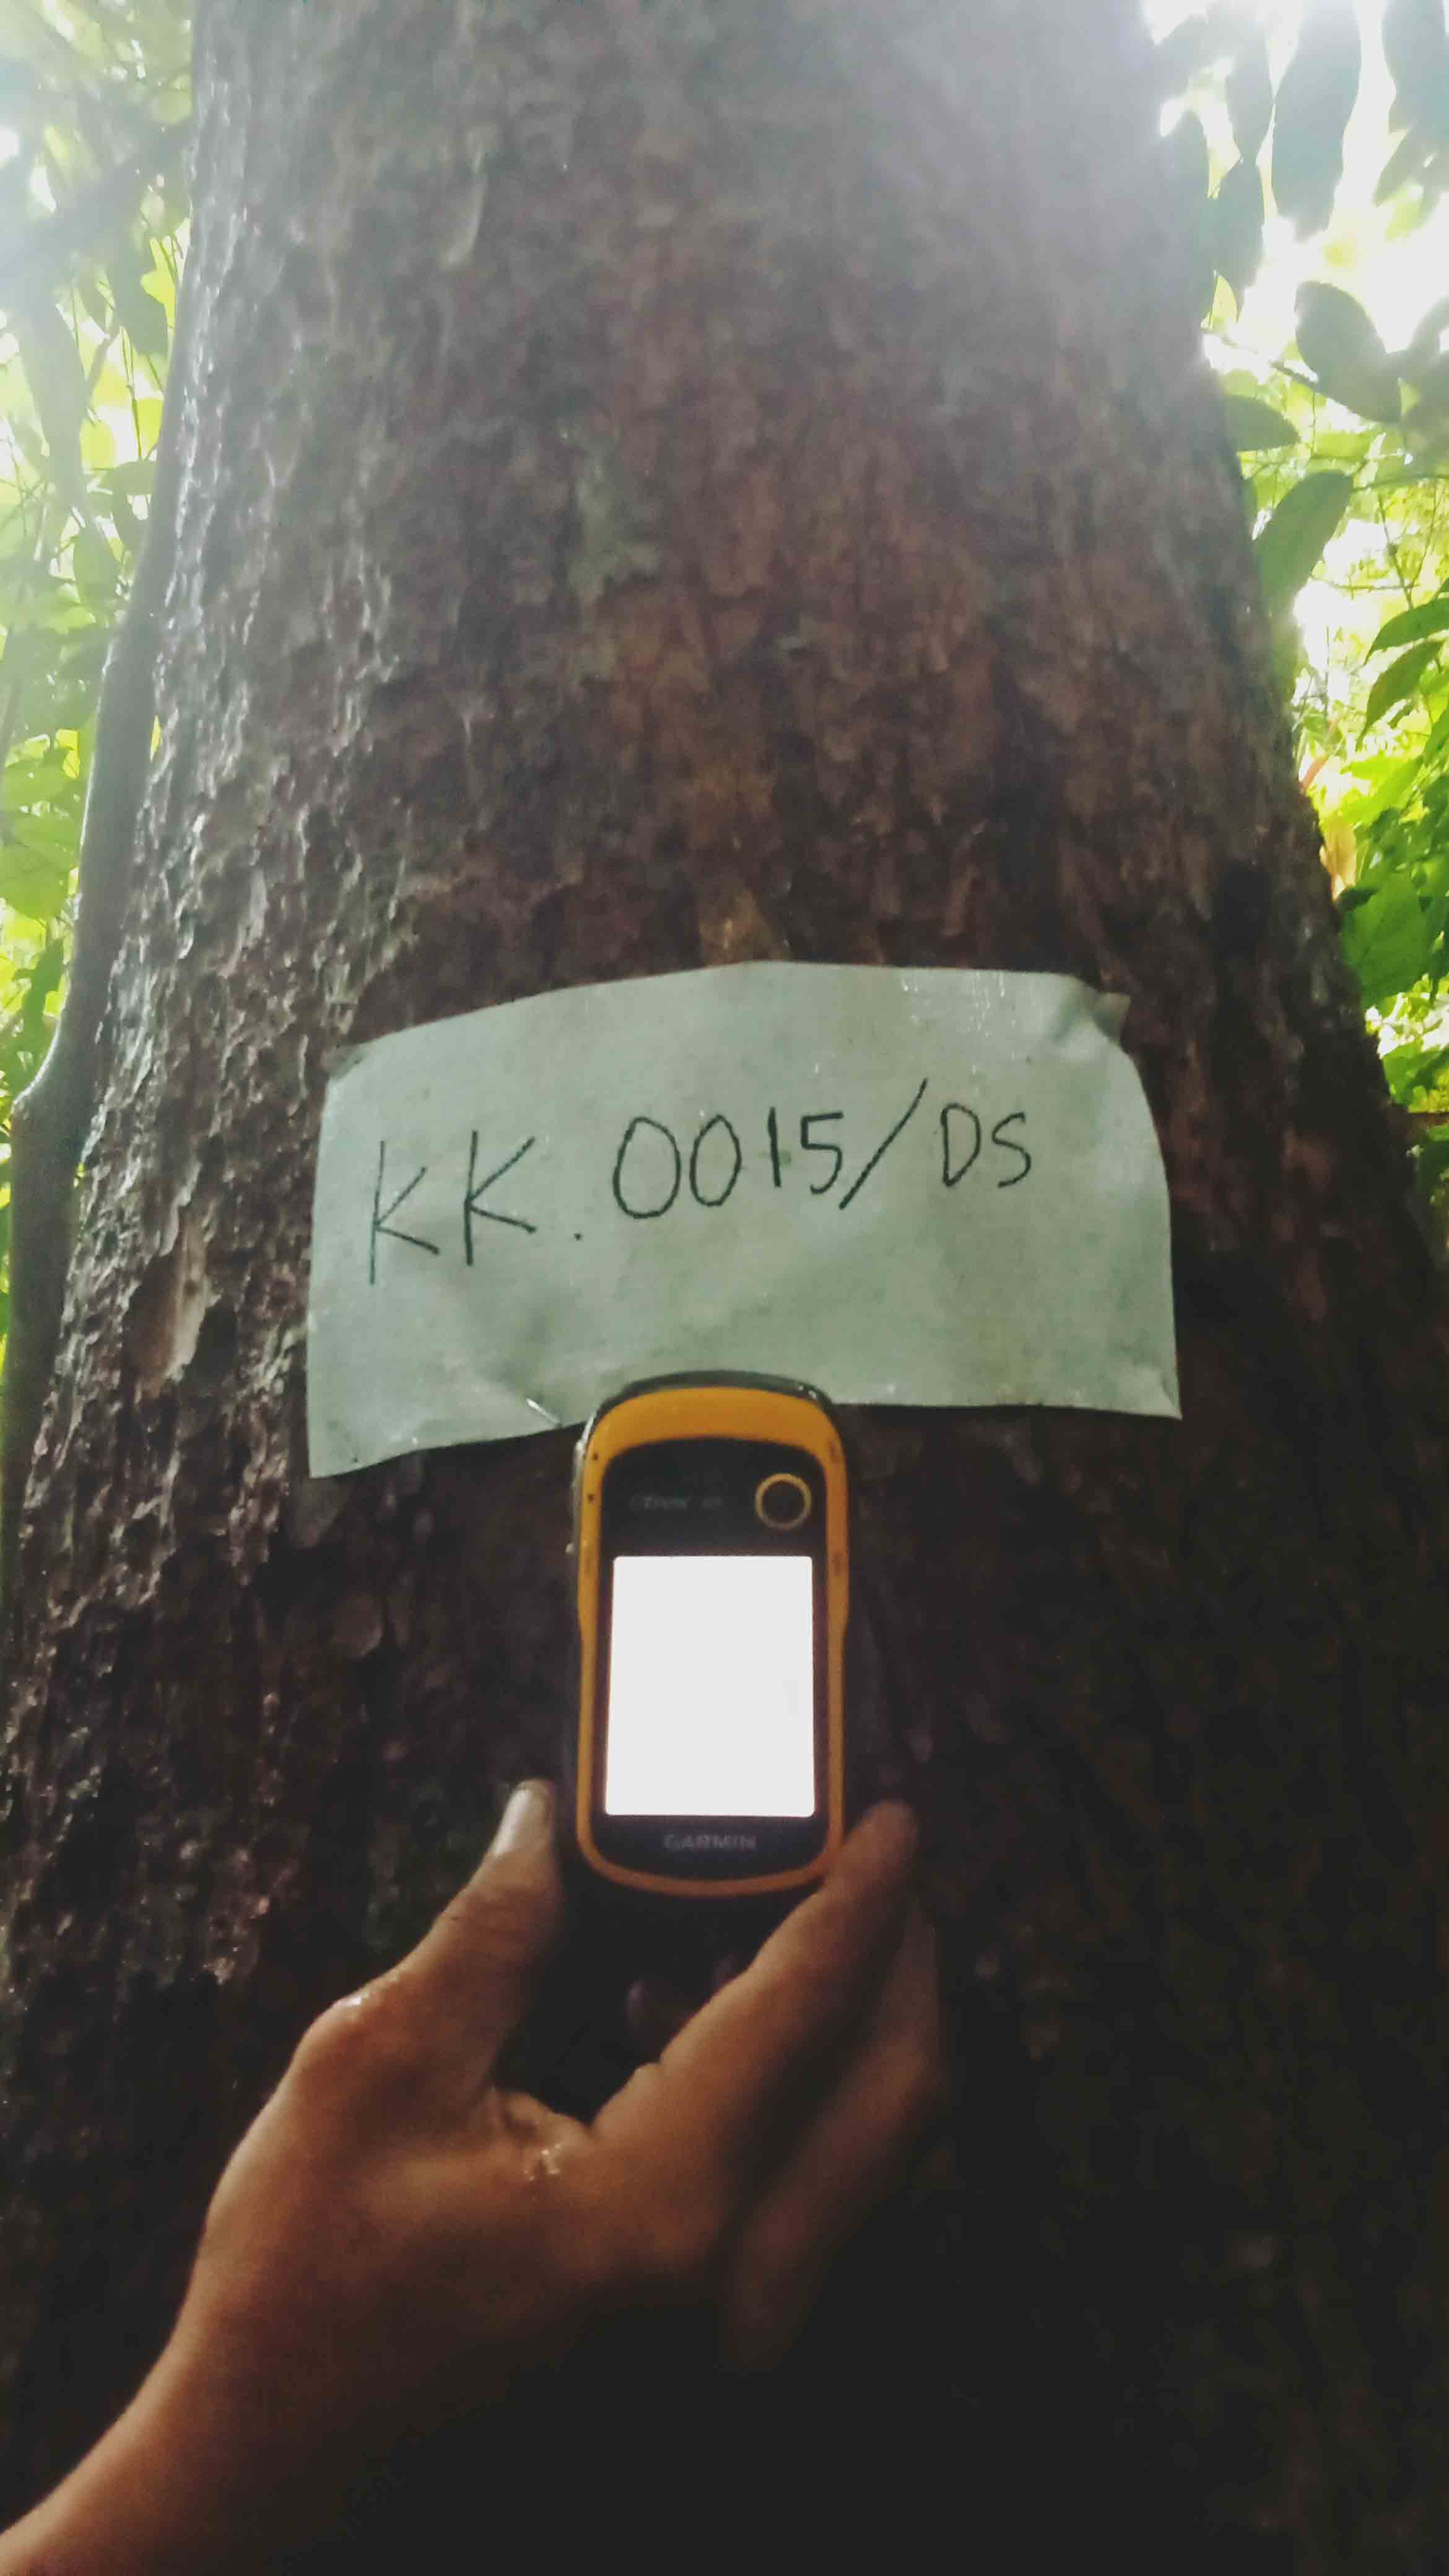 KK. 0015/DS
eTrex 10
GARMIN